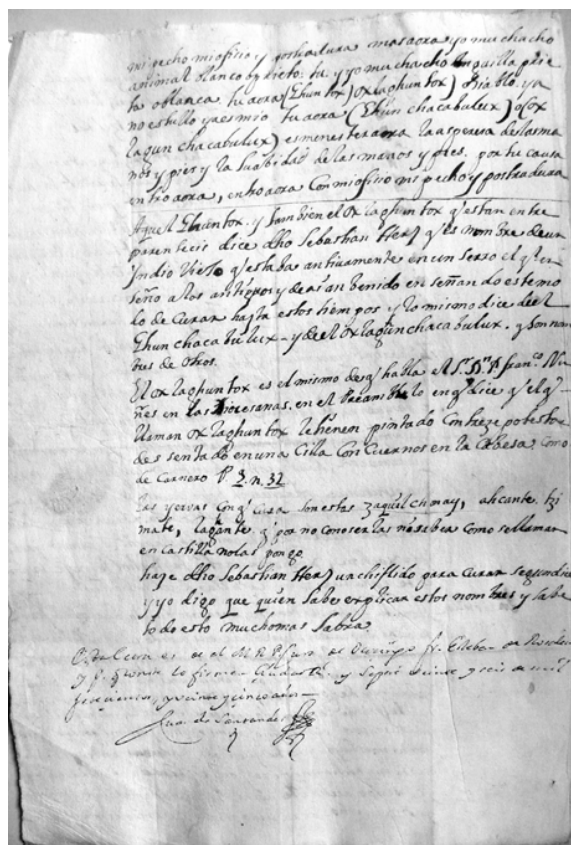 mi pecho mi ofisio y postradura mas aora yo muchacho
animal blanco o prieto. tu y yo muchacho anguilla prie
ta o blanca. tu aora (Ehun tox) oxlaghun tox) Diablo. ya
no es tullo ya es mio tu aora (Ehun chacabulux) o (ox
lagun chacabulux) es menester aora la aspereza de las ma
nos y pies y la suabidad de las manos y pies. por tu causa
entro aora, entro aora con mi ofisio mi pecho y postradura
Aquel Ehuntox. y tambien el oxlaghuntox q estan entre
parentecis dice dho Sebastian Herz q es nombre de un
Yndio Viejo q estaba antiguamente en un serro el q en
seño a los antiguos y de ai an benido enseñando este mo
lo de Curar hasta estos tiempos y lo mismo dice de el
Ehun chaca bulux. y de el oxlagun chacabulux. q son nom
bres de otros.
El oxlaghuntox es el mismo de q habla el Sr. Dn. fran.co Nu
ñes en las Diocesanas. en el Preambulo en q dice q el q
llaman oxlaghuntox le tienen pintado con treze potesta
des sentado en una Cilla con Cuernos en la Cabesa como
de Carnero P. 3. n. 32
Las yervas con q cura son estas zaquil chmay, alicante. tzi
mate, q por no conoserlas ni saber como se llaman
en castilla no las pongo
haze dho Sebastian Herz un chiflido para curar segun dice
y yo digo que quien sabe explicar estos nombres y sabe
todo esto mucho mas sabra
es de el M.R.P. Cura de fr.
y lo firmé y seis de mil
setecientos, y veinte y cinco años
Juan de Santander